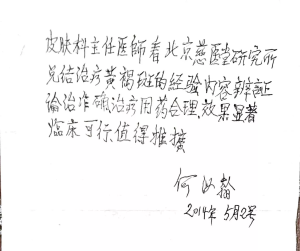 皮肤科主任医師看北京慈醫堂研究所
总结治疗黄褐斑的经验内容辨証
論治准确治疗用药合理、效果显著
臨床可行值得推擴
何
2014年 5月2号